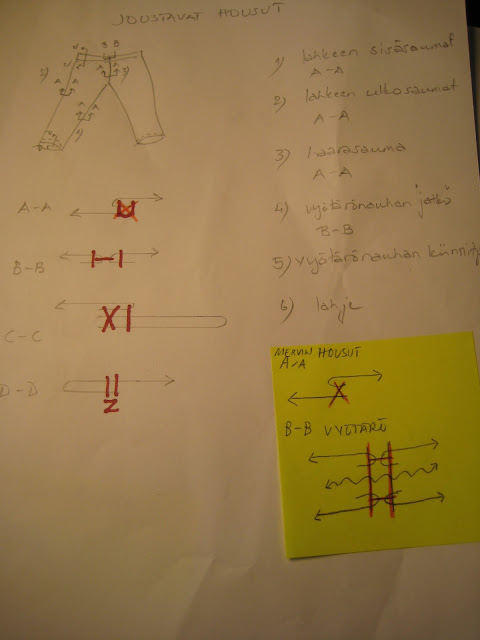 JOUSTAVAT HOUSUT
1) lahkeen sisäsaumat
A-A
2) lahkeen ulkosaumat
A-A
3) haarasauma
A-A
4) vyötärönauhan jatko
B-B
5) vyötärönauhan kiinnity
6) lahje
A-A
B-B
C-C
D-D
MERVIN HOUSUT
A-A
B-B VYÖTÄRÖ